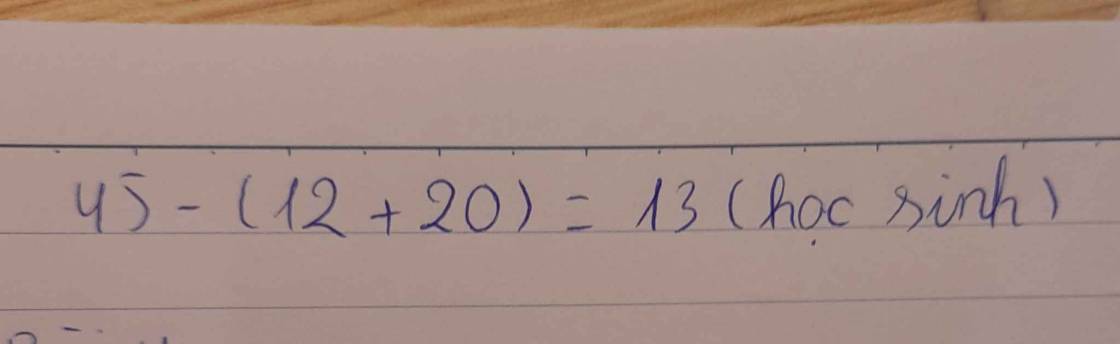 45 - (12 + 20) = 13 (học sinh)